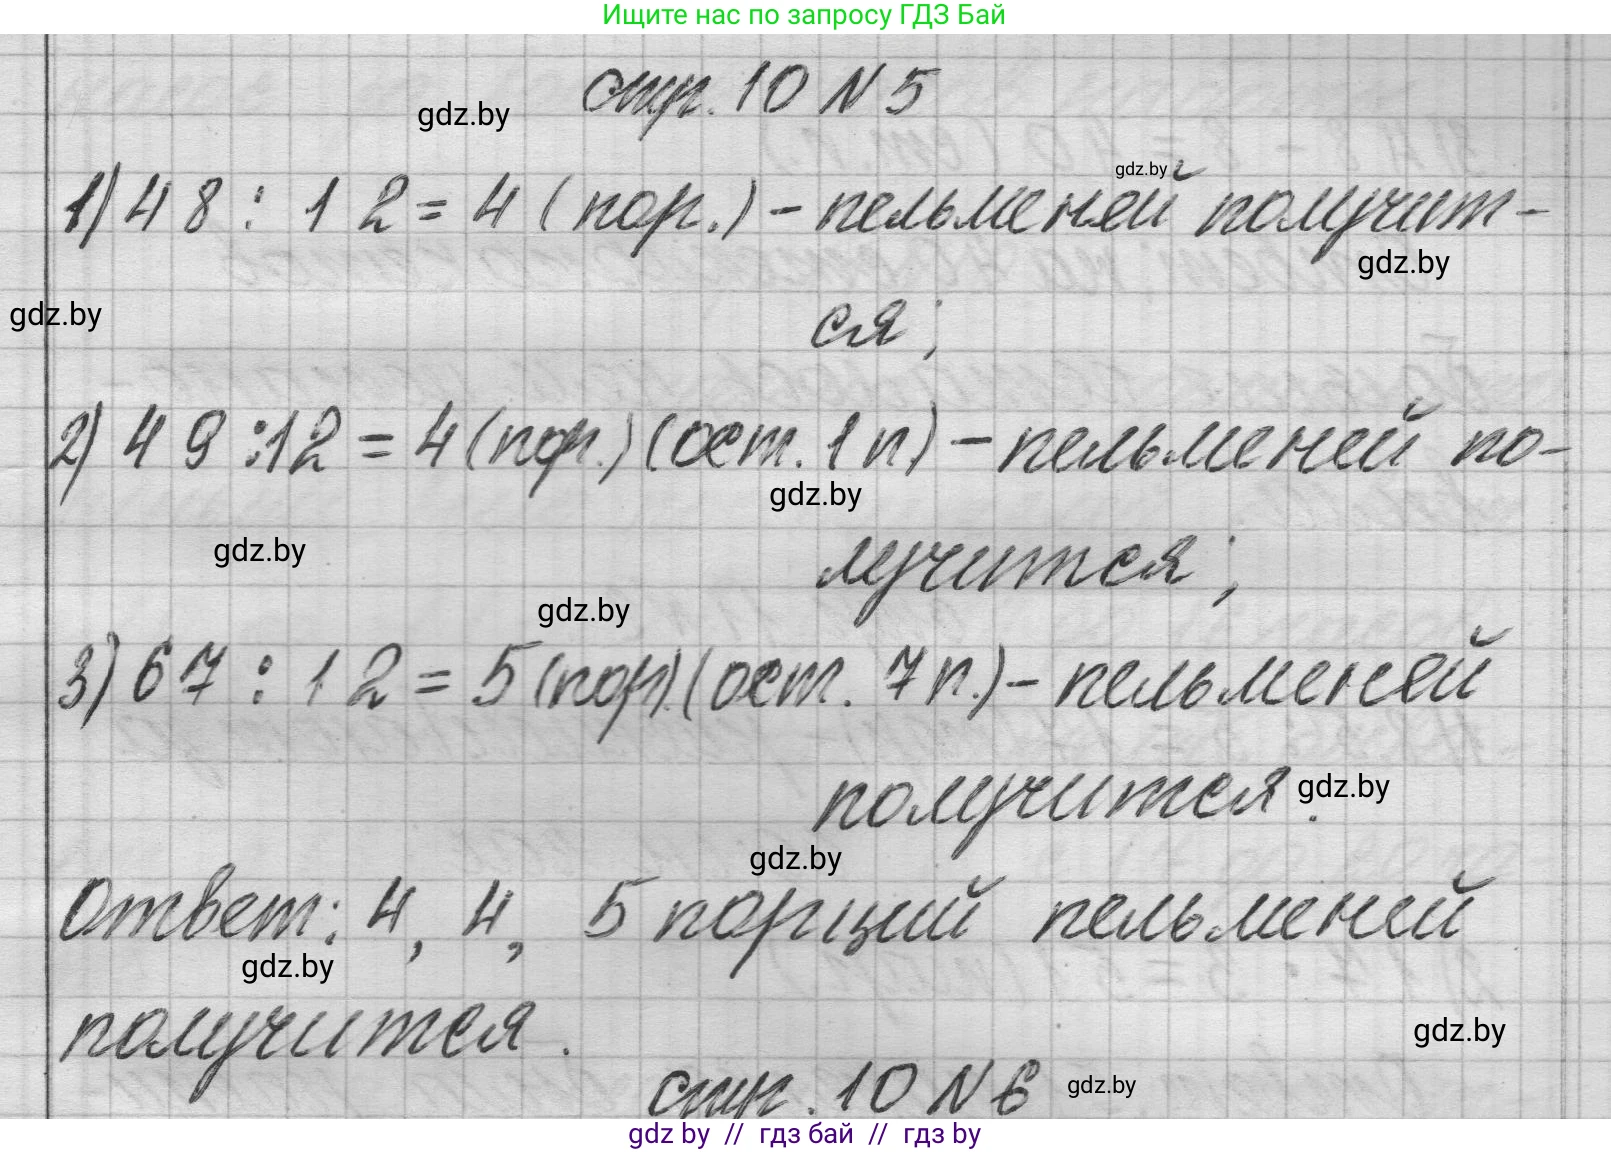 Ищите нас по запросу ГДЗ Бай
стр. 10 N 5
gdz.by
gdz.by
1) 48 : 12 = 4 (пор.) - пельменей получит-
gdz.by
gdz.by
ся;
2) 49 : 12 = 4 (пор.) (ост. 1 п) - пельменей по-
gdz.by
gdz.by
лучится;
gdz.by
3) 67 : 12 = 5 (пор). (ост. 7 п.) - пельменей
получится.
gdz.by
gdz.by
Ответ: 4, 4, 5 порций пельменей
gdz.by
получится.
gdz.by
стр. 10 N 6
gdz.by
gdz by // гдз бай // гдз by